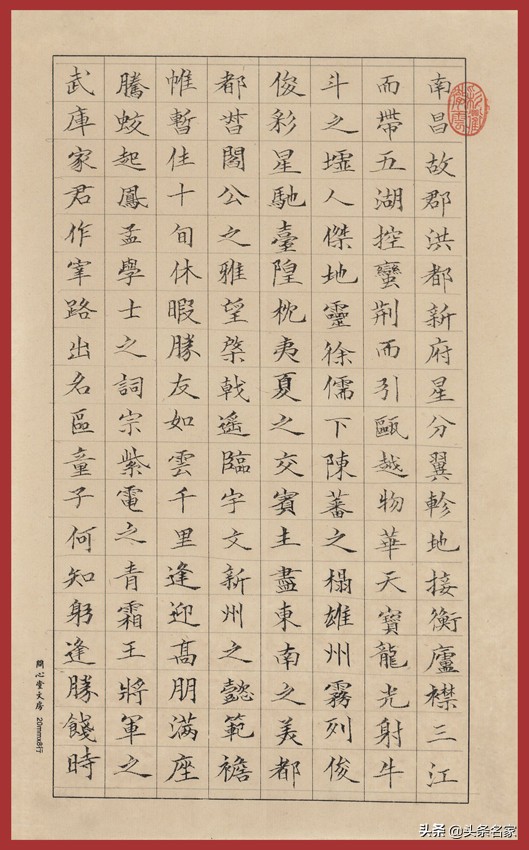 南昌故郡洪都新府星分翼軫地接衡廬襟三江
而帶五湖控蠻荆而引甌越物華天寶龍光射牛
斗之墟人傑地靈徐儒下陳蕃之榻雄州霧列俊
俊彩星馳臺隍枕夷夏之交賓主盡東南之美都
都督閻公之雅望棨戟遙臨宇文新州之懿範襜
帷暫佳十旬休暇勝友如雲千里逢迎高朋滿座
騰蛟起鳳孟學士之詞宗紫電之青霜王將軍之
武庫家君作宰路出名區童子何知躬逢勝餞時
問心堂文房 20mmx8行
头条 @头条名家